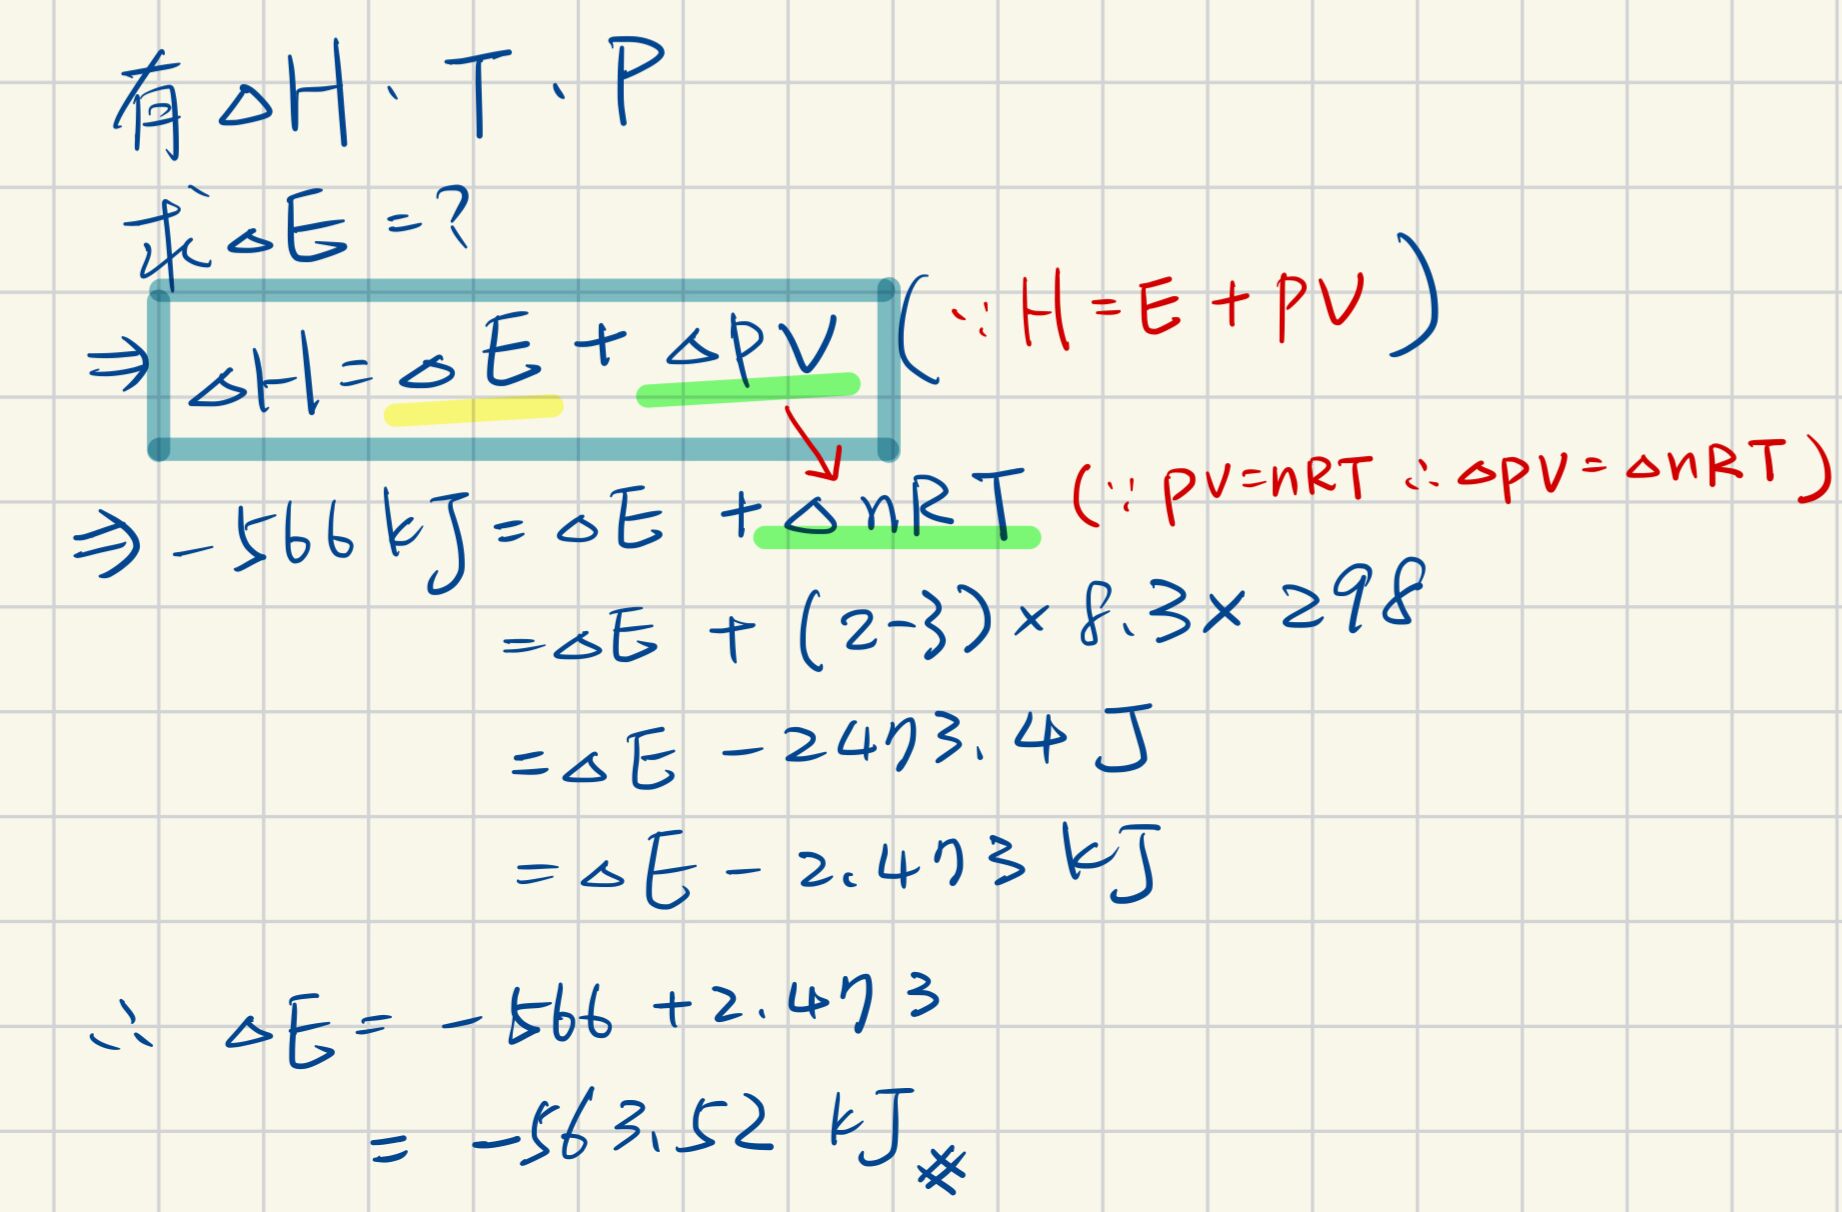 有 ΔH、T、P
求 ΔE = ?
⇒ ΔH = ΔE + ΔPV (∵ H = E + PV)
⇒ -566 kJ = ΔE + ΔnRT (∵ PV = nRT ∴ ΔPV = ΔnRT)
= ΔE + (2-3) × 8.3 × 298
= ΔE - 2473.4 J
= ΔE - 2.473 kJ
∴ ΔE = -566 + 2.473
= -563.52 kJ #